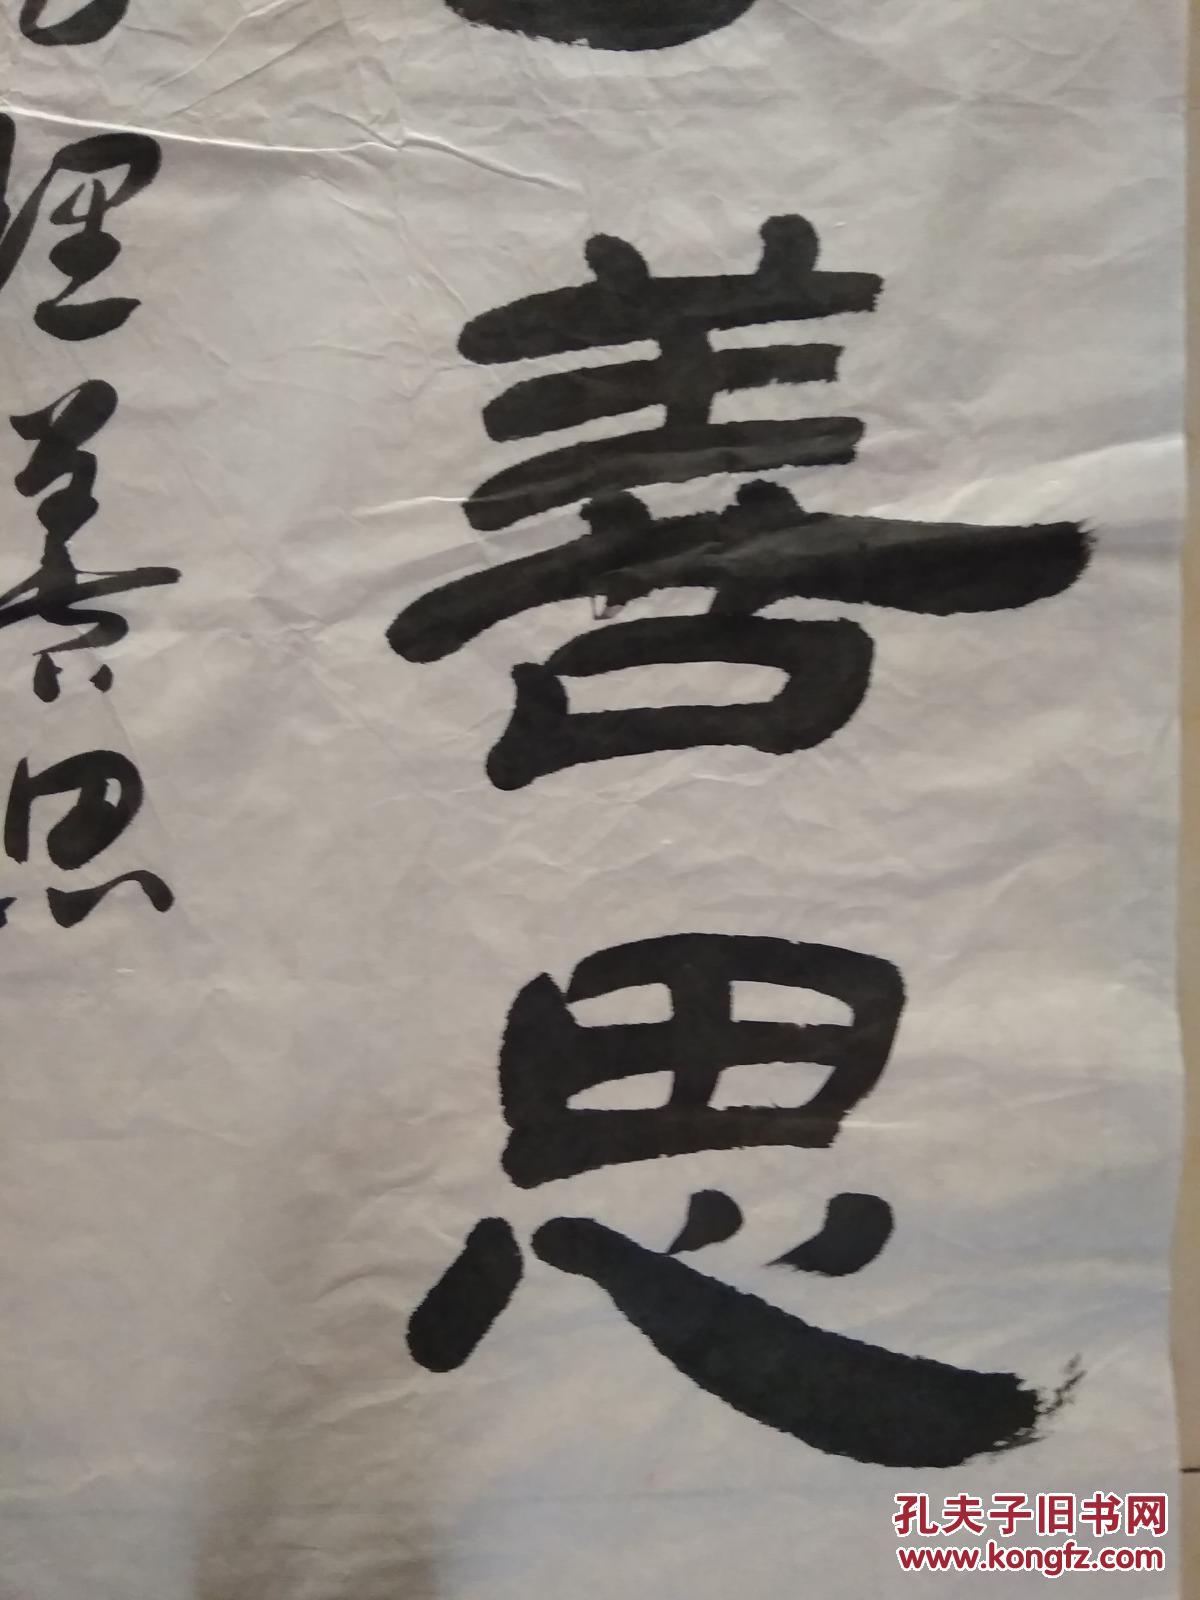 善思
理善思
孔夫子旧书网
www.kongfz.com